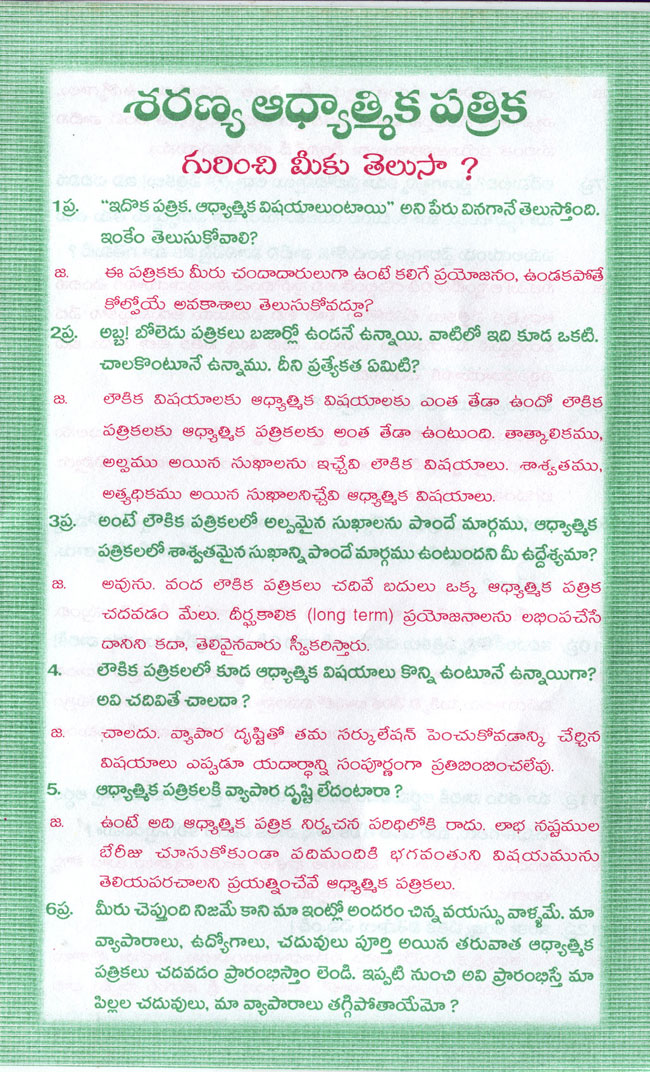 శరణ్య ఆధ్యాత్మిక పత్రిక
గురించి మీకు తెలుసా ?
1ప్ర. “ఇదొక పత్రిక. ఆధ్యాత్మిక విషయాలుంటాయి” అని పేరు వినగానే తెలుస్తోంది.
ఇంకేం తెలుసుకోవాలి?
జ. ఈ పత్రికకు మీరు చందాదారులుగా ఉంటే కలిగే ప్రయోజనం, ఉండకపోతే
కోల్పోయే అవకాశాలు తెలుసుకోవద్దూ?
2ప్ర. అబ్బ! బోలెడు పత్రికలు బజార్లో ఉండనే ఉన్నాయి. వాటిలో ఇది కూడ ఒకటి.
చాలకొంటూనే ఉన్నాము. దీని ప్రత్యేకత ఏమిటి?
జ. లౌకిక విషయాలకు ఆధ్యాత్మిక విషయాలకు ఎంత తేడా ఉందో లౌకిక
పత్రికలకు ఆధ్యాత్మిక పత్రికలకు అంత తేడా ఉంటుంది. తాత్కాలికము,
అల్పము అయిన సుఖాలను ఇచ్చేవి లౌకిక విషయాలు. శాశ్వతము,
అత్యధికము అయిన సుఖాలనిచ్చేవి ఆధ్యాత్మిక విషయాలు.
3ప్ర. అంటే లౌకిక పత్రికలలో అల్పమైన సుఖాలను పొందే మార్గము, ఆధ్యాత్మిక
పత్రికలలో శాశ్వతమైన సుఖాన్ని పొందే మార్గము ఉంటుందని మీ ఉద్దేశ్యమా?
జ. అవును. వంద లౌకిక పత్రికలు చదివే బదులు ఒక్క ఆధ్యాత్మిక పత్రిక
చదవడం మేలు. దీర్ఘకాలిక (long term) ప్రయోజనాలను లభింపచేసే
దానిని కదా, తెలివైనవారు స్వీకరిస్తారు.
4. లౌకిక పత్రికలలో కూడ ఆధ్యాత్మిక విషయాలు కొన్ని ఉంటూనే ఉన్నాయిగా?
అవి చదివితే చాలదా ?
జ. చాలదు. వ్యాపార దృష్టితో తమ సర్కులేషన్ పెంచుకోవడాన్కి చేర్చిన
విషయాలు ఎప్పడూ యదార్ధాన్ని సంపూర్ణంగా ప్రతిబింబించలేవు.
5. ఆధ్యాత్మిక పత్రికలకి వ్యాపార దృష్టి లేదంటారా ?
జ. ఉంటే అది ఆధ్యాత్మిక పత్రిక నిర్వచన పరిధిలోకి రాదు. లాభ నష్టముల
బేరీజు చూసుకోకుండా పదిమందికి భగవంతుని విషయమును
తెలియపరచాలని ప్రయత్నించేవే ఆధ్యాత్మిక పత్రికలు.
6ప్ర. మీరు చెప్తుంది నిజమే కాని మా ఇంట్లో అందరం చిన్నవయస్సు వాళ్ళమే. మా
వ్యాపారాలు, ఉద్యోగాలు, చదువులు పూర్తి అయిన తరువాత ఆధ్యాత్మిక
పత్రికలు చదవడం ప్రారంభిస్తాం లెండి. ఇప్పటి నుంచి అవి ప్రారంభిస్తే మా
పిల్లల చదువులు, మా వ్యాపారాలు తగ్గిపోతాయేమో ?